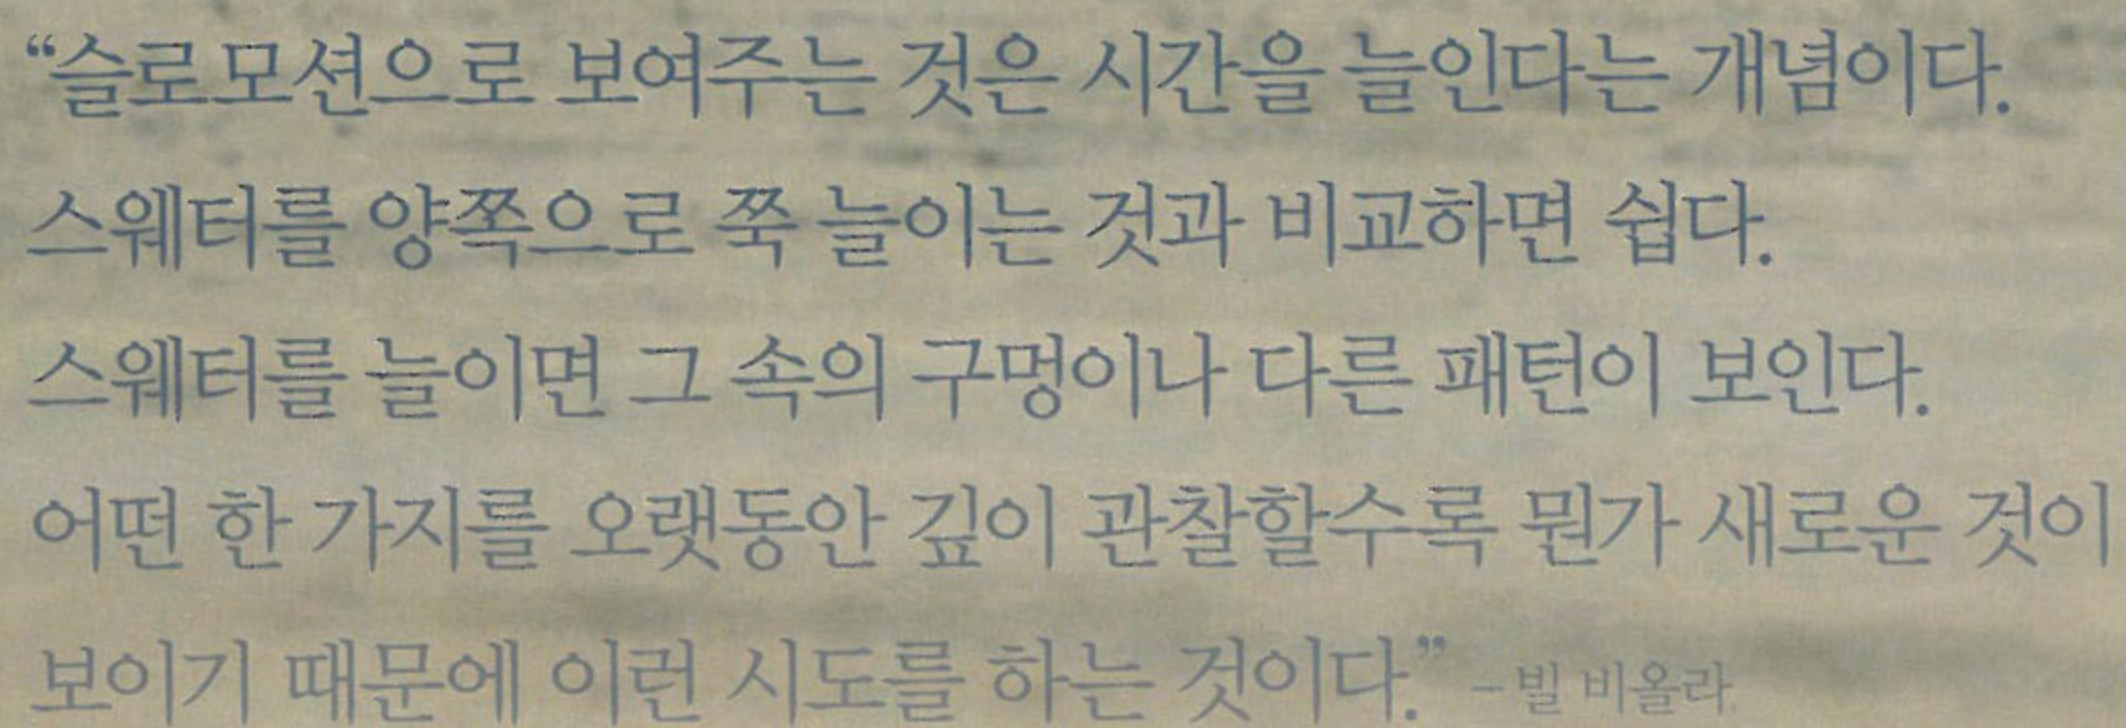 “슬로모션으로 보여주는 것은 시간을 늘인다는 개념이다.
스웨터를 양쪽으로 쭉 늘이는 것과 비교하면 쉽다.
스웨터를 늘이면 그 속의 구멍이나 다른 패턴이 보인다.
어떤 한 가지를 오랫동안 깊이 관찰할수록 뭔가 새로운 것이
보이기 때문에 이런 시도를 하는 것이다.” – 빌 비올라